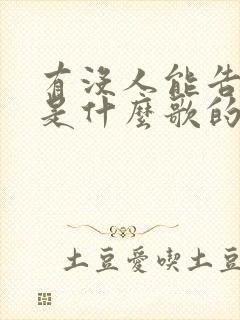 有沒人能告
是什麼歌的
土豆愛喫土豆